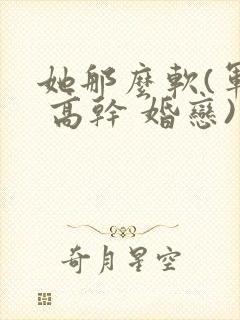 她那麼軟(軍
高幹 婚戀)
奇月星空